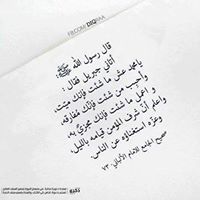 FB.COM/DEQRAA
قال رسول الله ﷺ
أتاني جبريل فقال :
يا محمد عش ما شئت فإنك ميت،
وأحبب من شئت فإنك مفارقه،
واعمل ما شئت فإنك مجزيّ به،
واعلم أنّ شرف المؤمن قيامه بالليل،
وعزّه استغناؤه عن الناس.
صحيح الجامع للإمام الألباني ٧٣